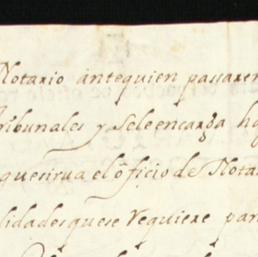 Notario antequien pasaren
tribunales y sele encarga ha
quesirua el officio de Nota
lidades que se requiere par